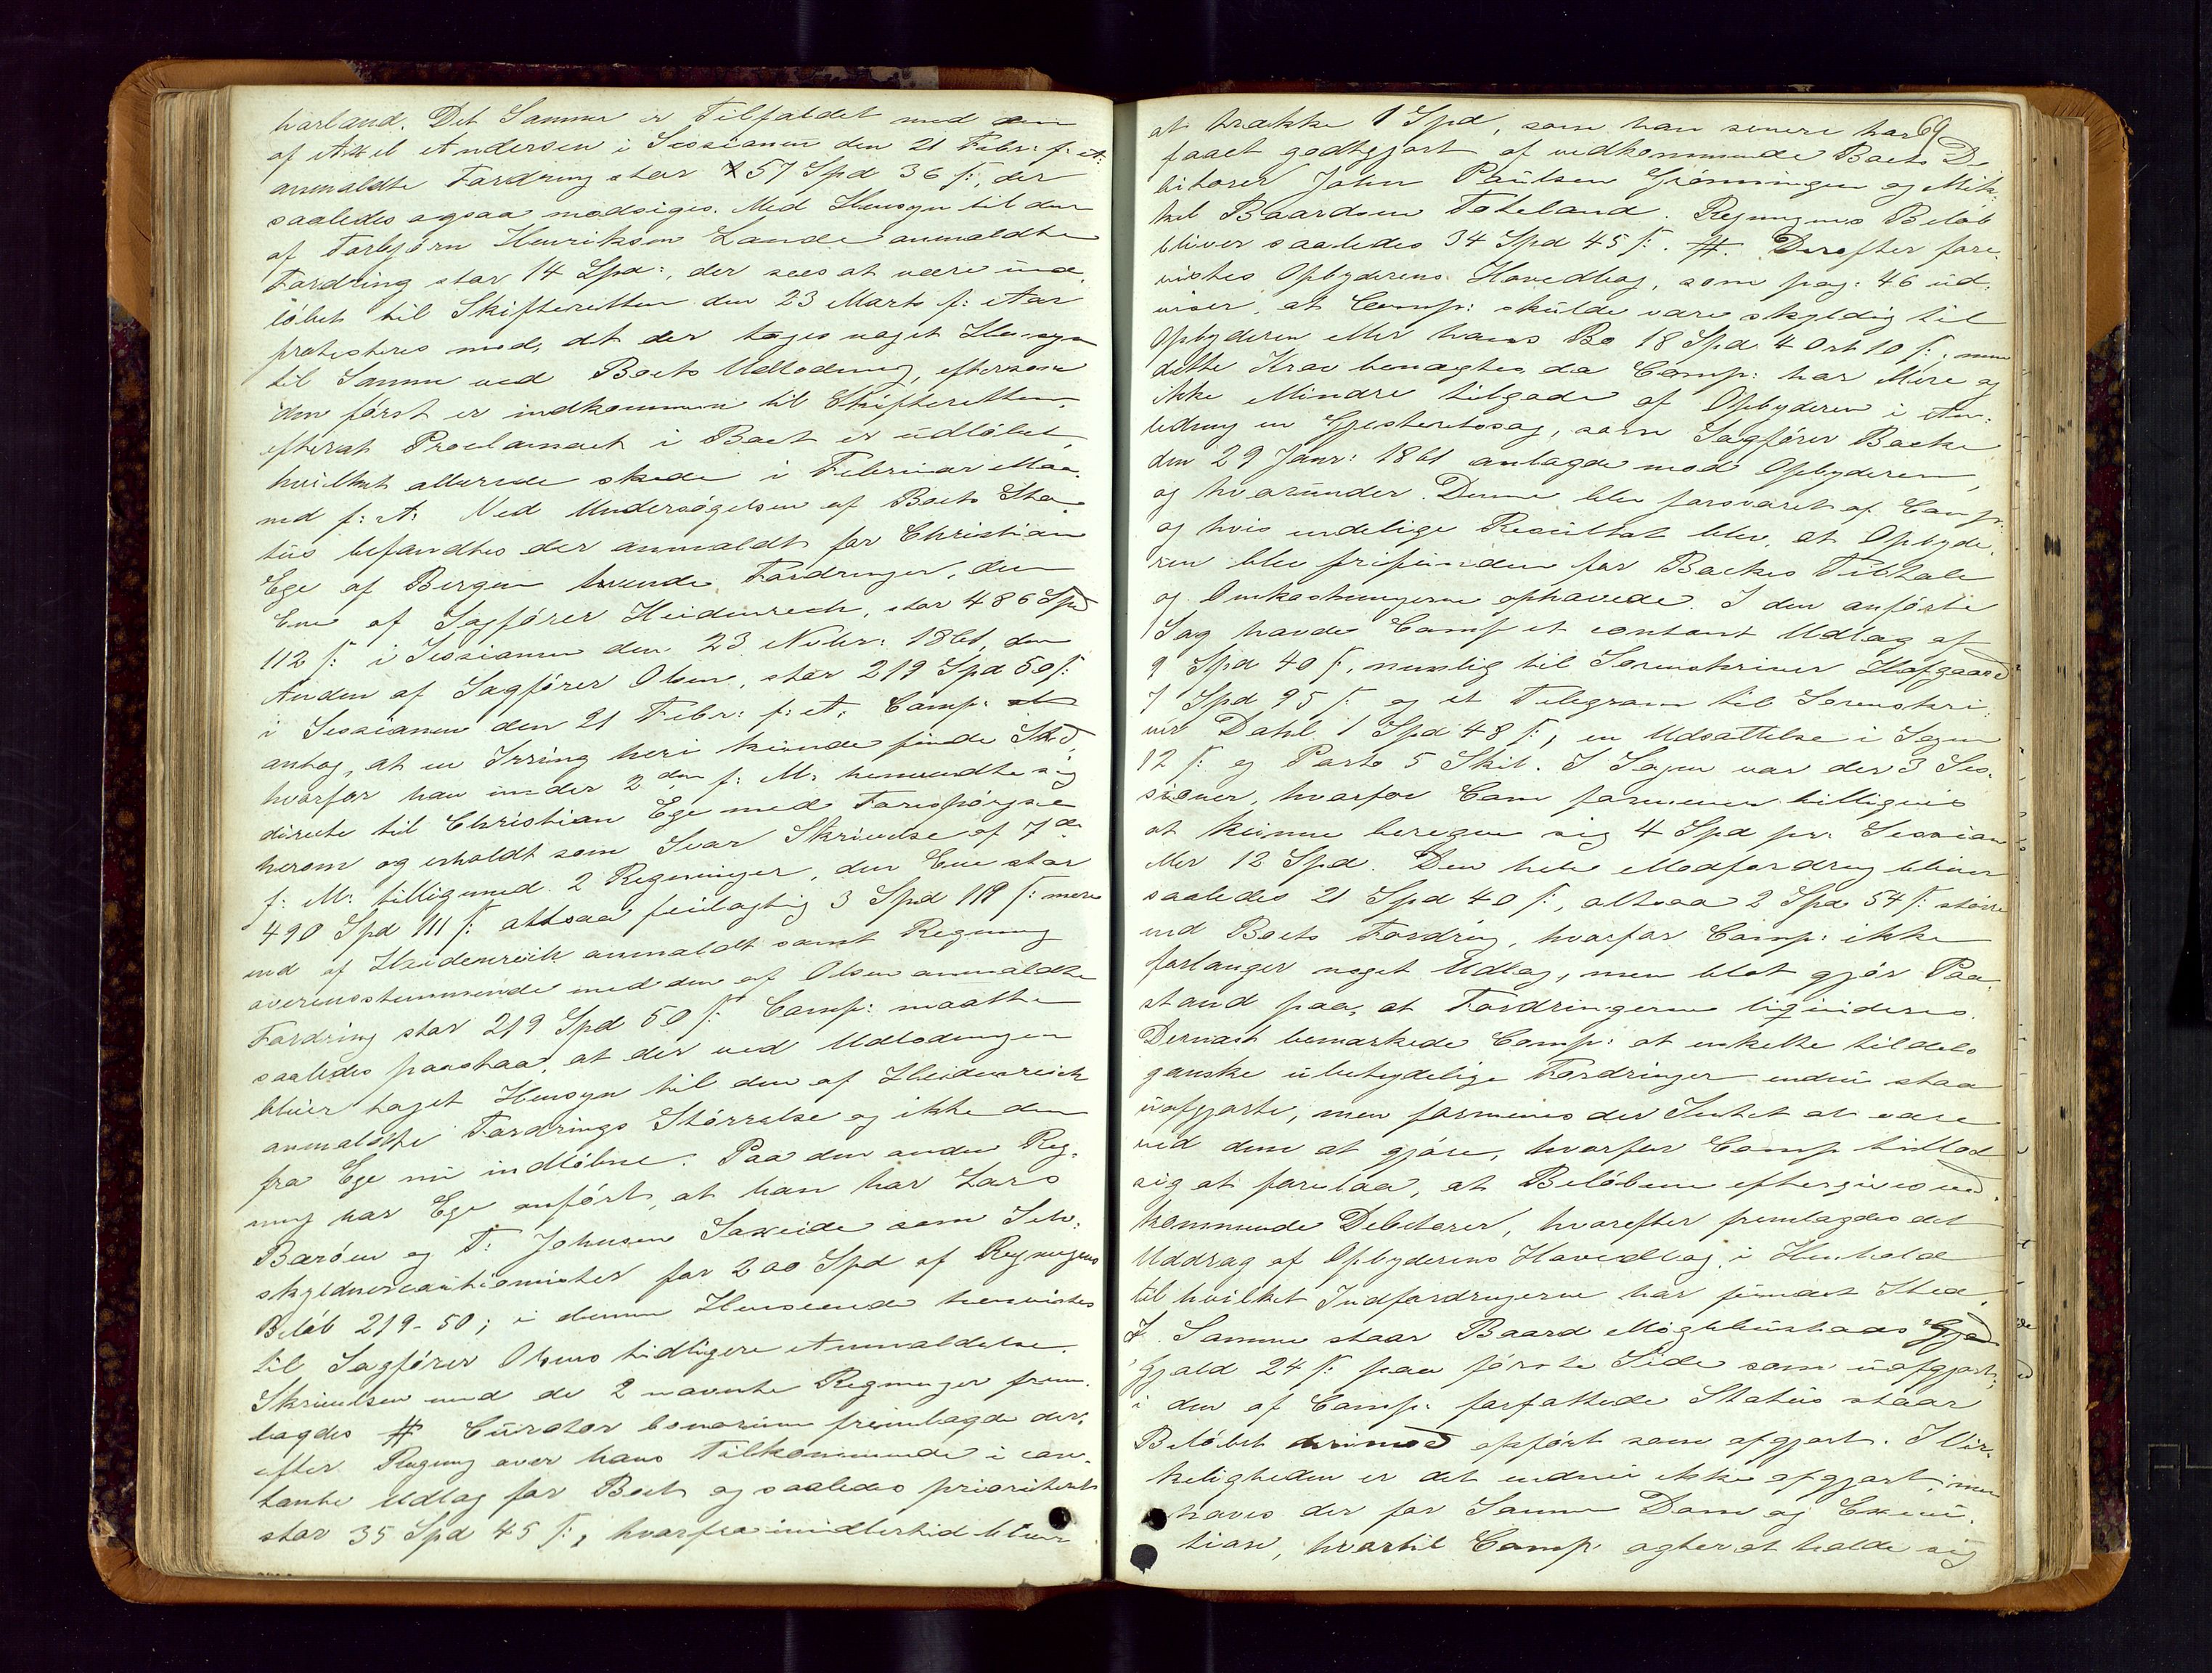 harland. Det Samme er Tilfældet med den
af Axel Andersen i Sessionen den 21 Febr: f: A:
anmeldte Fordring stor 57 Spd 36 ß:, der
saaledes ogsaa modsiges. Med Hensyn til den
af Torbjørn Henriksen Lande anmeldte
Fordring stor 14 Spd:, der sees at være ind-
løbet til Skifteretten den 23 Marts f: Aar
protesteres mod, at der tages noget Hensyn
til Samme ved Boets Udlodning, eftersom
den først er indkommen til Skifteretten,
efterat Proclamaet i Boet er udløbet,
hvilket allerede skede i Februar Maa-
ned f: A: Ved Undersøgelsen af Boets Sta-
tus befandtes der anmeldt for Christian
Ege af Bergen tvende Fordringer, den
Ene af Sagfører Heidenreich, stor 486 Spd
112 ß: i Sessionen den 23 Novbr: 1861, den
Anden af Sagfører Olsen, stor 219 Spd 50 ß:
i Sessionen den 21 Febr: f: A: Comp:
antog, at en Irring heri kunde finde Sted,
hvorfor han under 2den f: M: henvendte sig
directe til Christian Ege med Forespørgsel
herom og erholdt som Svar Skrivelse af 7de
f: M: tilligemed 2 Regninger, den Ene stor
490 Spd 111 ß: altsaa feilagtig 3 Spd 119 ß: mere
end af Heidenreich anmeldt samt Regning
overensstemmende med den af Olsen anmeldte
Fordring stor 219 Spd 50 ß: Comp: maatte
saaledes paastaa, at der ved Udlodningen
bliver taget Hensyn til den af Heidenreich
anmeldte Fordrings Størrelse og ikke den
fra Ege nu indløbne. Paa den anden Reg-
ning har Ege anført, at han har Lars
Barøen og T: Johnsen Saxeide som Selv-
skyldnercautionister for 200 Spd af Regningens
Beløb 219-50; i denne Henseende henvistes
til Sagfører Olsens tidligere Anmeldelse.
Skrivelsen med de 2 nævnte Regninger frem-
lagdes #. Curator bonorum fremlagde der-
efter Regning over hans Tilkommende i con-
tante Udlæg for Boet og saaledes prioriteret
stor 35 Spd 45 ß:, hvorfra imidlertid bliver
69
at trække 1 Spd, som han senere har
faaet godtgjort af vedkommende Boets De-
bitorer John Paulsen Grønningen og Mik-
kel Baardsen Toteland. Regningens Beløb
bliver saaledes 34 Spd 45 ß:. #. Derefter fore-
vistes Opbyderens Hovedbog, som pag: 46 ud-
viser, at Comp: skulde være skyldig til
Opbyderen eller hans Bo 18 Spd 4 Ort 10 ß:, men
dette Krav benægtes da Comp: har Mere og
ikke Mindre tilgode af Opbyderen i An-
ledning en Gjesteretssag, som Sagfører Backe
den 29 Janr: 1861 anlagde mod Opbyderen,
og hvorunder Denne blev forsvaret af Comp:
og hvis endelige Resultat blev, at Opbyde-
ren blev frifunden for Backes Tiltale
og Omkostningerne ophævede. I den anførte
Sag havde Comp et contant Udlæg af
9 Spd 40 ß, nemlig til Sorenskriver Hofgaard
7 Spd 95 ß: og et Telegram til Sorenskri-
ver Dahl 1 Spd 48 ß:, en Udsættelse i Sagen
12 ß: og Porto 5 Skil. I Sagen var der 3 Ses-
sioner, hvorfor Com formener billigvis
at kunne beregne sig 4 Spd pr: Session
eller 12 Spd. Den hele Modfordring bliver
saaledes 21 Spd 40 ß:, altsaa 2 Spd 54 ß: større
end Boets Fordring, hvorfor Comp: ikke
forlanger noget Udlæg, men blot gjør Paa-
stand paa, at Fordringerne liqvideres.
Dernæst bemærkede Comp: at enkelte tildels
ganske ubetydelige Fordringer endnu staa
uafgjorte, men formenes der Intet at være
ved dem at gjøre, hvorfor Comp tillod
sig at foreslaa, at Beløbene eftergives ved-
kommende Debitorer, hvorefter fremlagdes det
Uddrag af Opbyderens Hovedbog, i Henhold
til hvilket Indfordringerne har fundet Sted.
I Samme staar Baard Møglebustads
Gjæld 24 ß: paa første Side som uafgjort;
i den af Comp: forfattede Status staar
Beløbet derimod opført som afgjort. I Vir-
keligheden er det endnu ikke afgjort, men
haves der for Samme Dom og Execu-
tion, hvortil Comp agter at holde sig